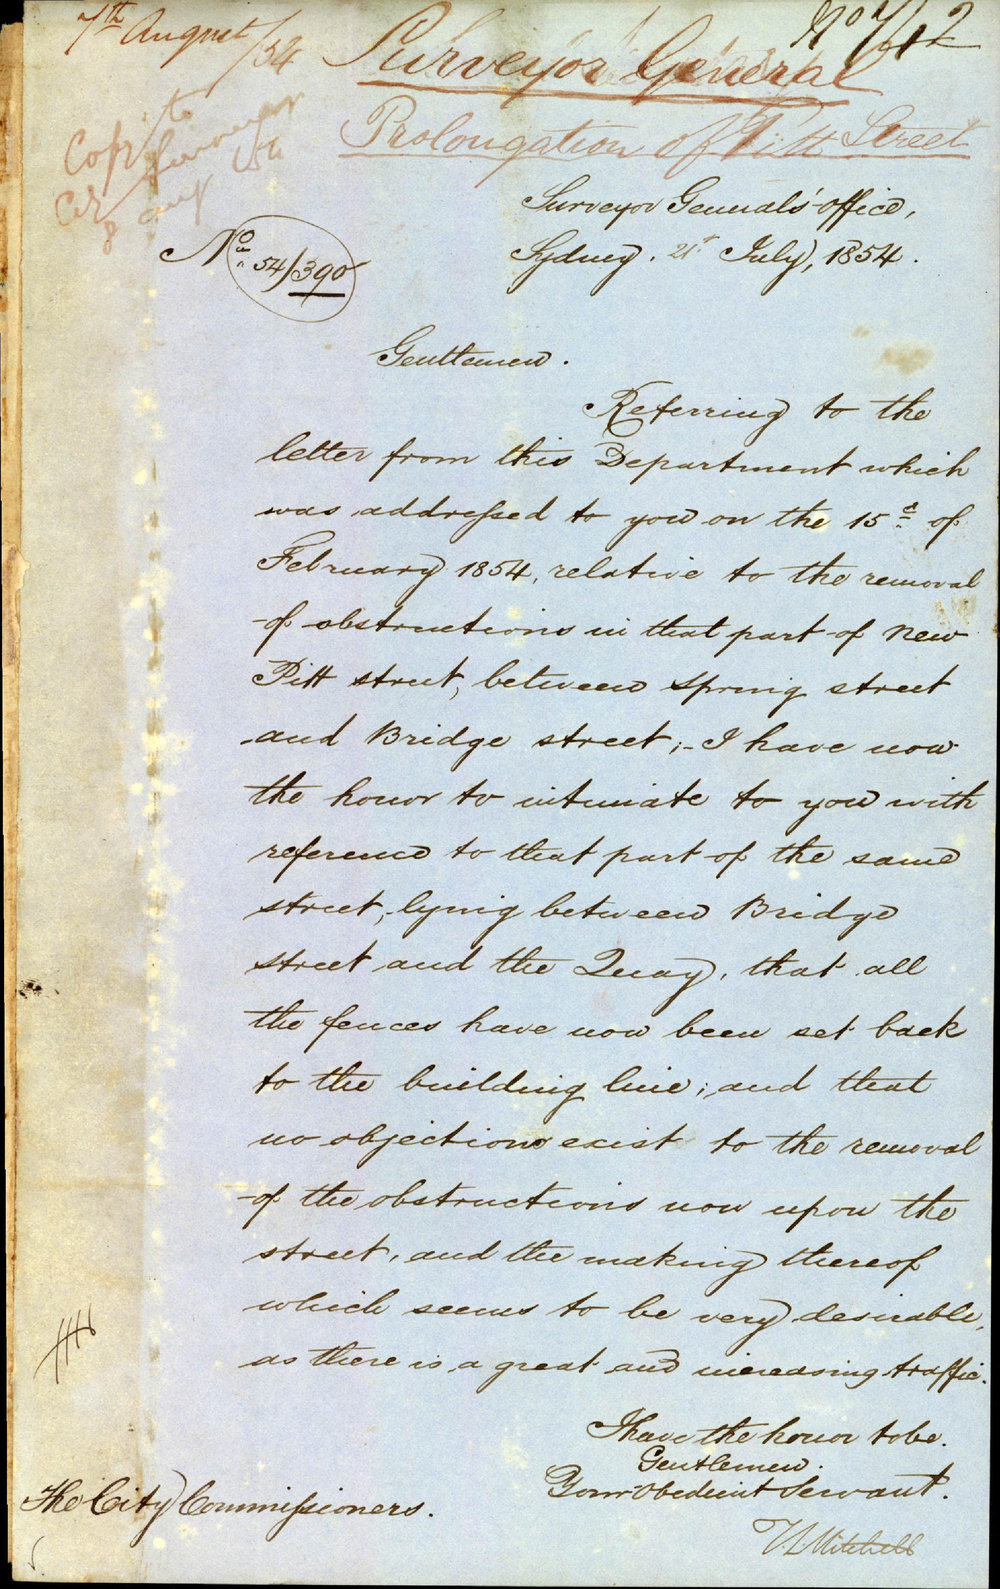 7th August/54
No 712
Surveyor General
Prolongation of Pitt Street
Copy to
City Surveyor
8 Aug 54
Surveyor General's office,
Sydney. 21st July, 1854.
No. 54/390
Gentlemen.
Referring to the
letter from this Department which
was addressed to you on the 15th of
February 1854, relative to the removal
of obstructions in that part of New
Pitt street, between Spring street
and Bridge street;- I have now
the honor to intimate to you with
reference to that part of the same
street, lying between Bridge
street and the Quay, that all
the fences have now been set back
to the building line; and that
no objections exist to the removal
of the obstructions now upon the
street, and the making thereof
which seems to be very desirable,
as there is a great and increasing traffic.
I have the honor to be.
Gentlemen.
Your Obedient Servant.
T L Mitchell
The City Commissioners.